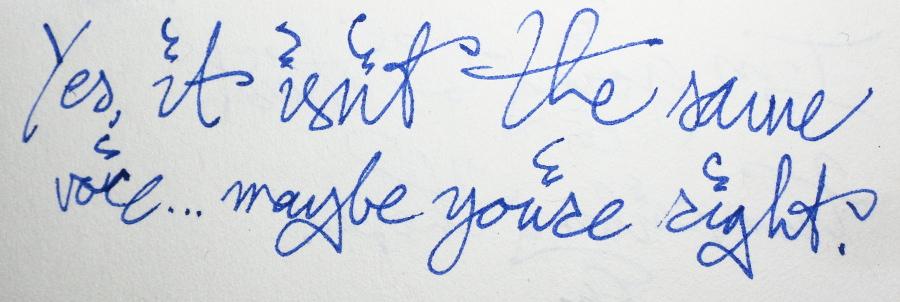 Yes, it isn't the same
voice... maybe you're right?